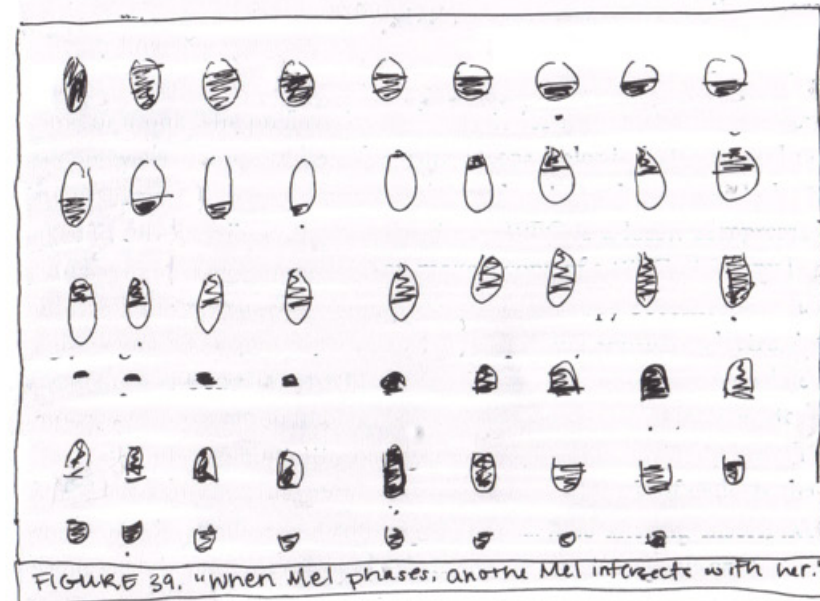 FIGURE 39. "When Mel phases, anothe Mel intersects with her."